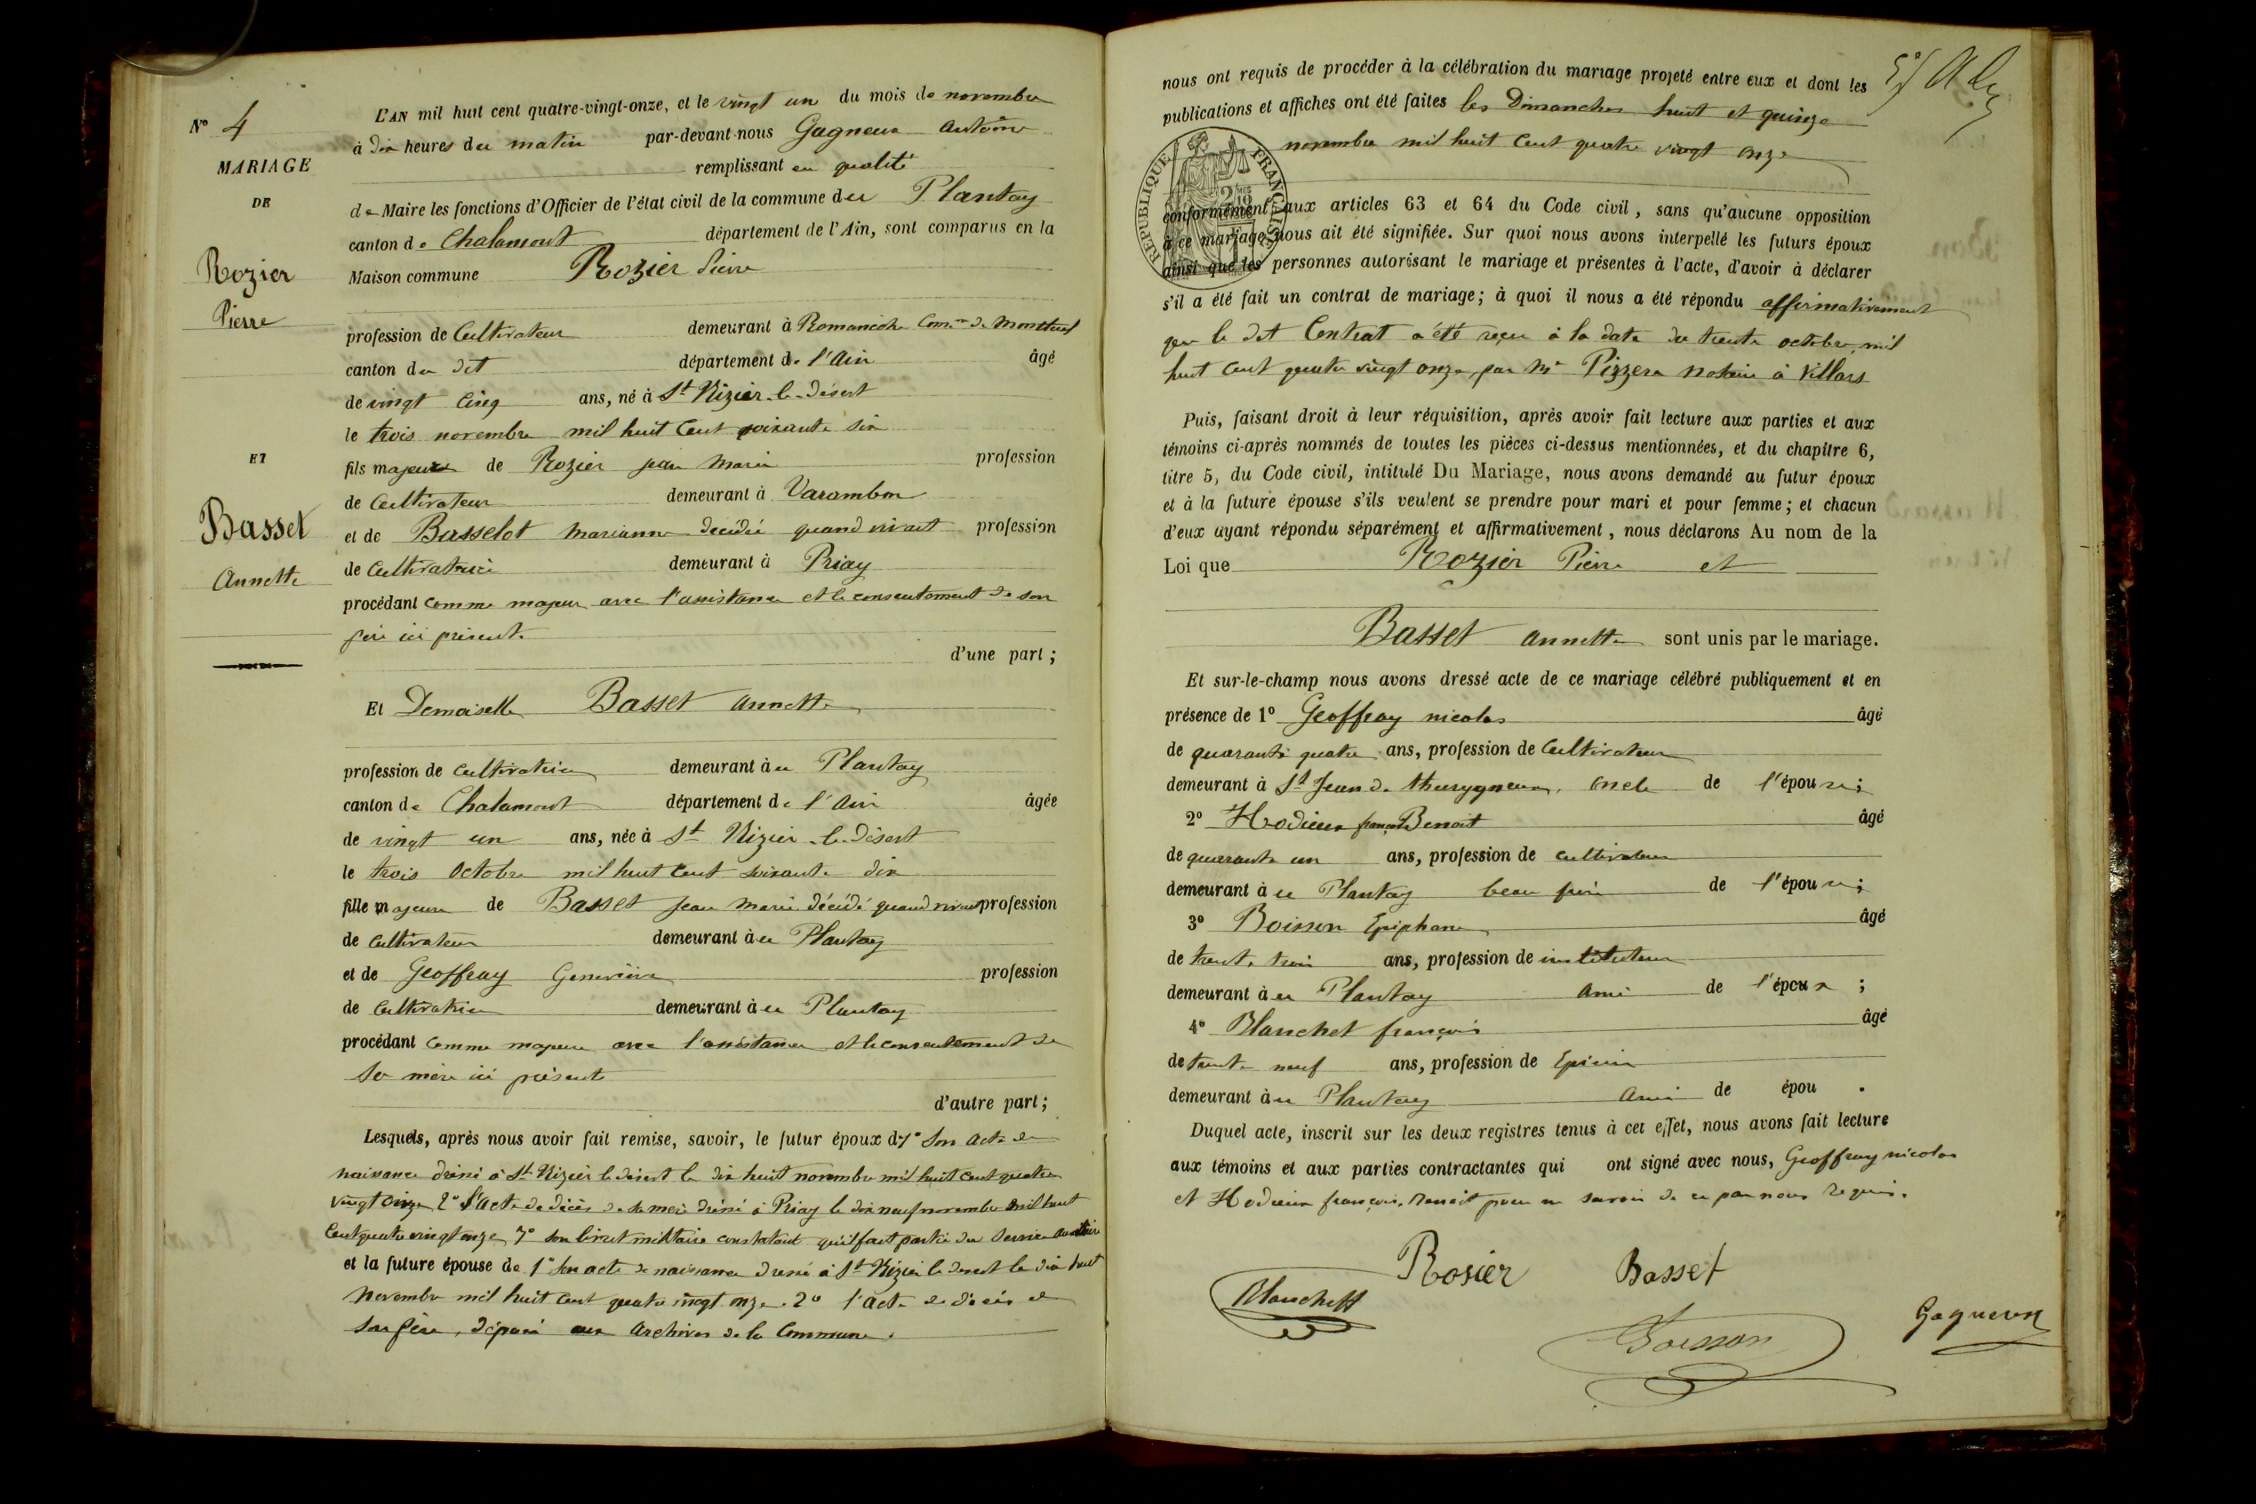 N° 4
MARIAGE
DE
Rozier
Pierre
ET
Basset
Annette
L'AN mil huit cent quatre-vingt-onze, et le vingt un du mois de novembre
à dix heures du matin par-devant-nous Gagneux Antoine
remplissant en qualité
de Maire les fonctions d'Officier de l'état civil de la commune du Plantay
canton de Chalamont département de l'Ain, sont comparus en la
Maison commune Rozier Pierre
profession de Cultivateur demeurant à Romanèche Com.ne de Montluel
canton du dit département de l'Ain âgé
de vingt cinq ans, né à St Nizier-le-Désert
le trois novembre mil huit cent soixante six
fils majeur de Rozier Jean Marie profession
de Cultivateur demeurant à Varambon
et de Basselot Marianne décédée quand vivait profession
de Cultivatrice demeurant à Priay
procédant comme majeur avec l'assistance et le consentement de son
père ici présent
d'une part;
Et Demoiselle Basset Annette
profession de cultivatrice demeurant à u Plantay
canton de Chalamont département de l'Ain âgée
de vingt un ans, née à St Nizier-le-Désert
le trois Octobre mil huit cent soixante dix
fille majeure de Basset Jean Marie décédé quand vivait profession
de cultivateur demeurant à u Plantay
et de Geoffray Geneviève profession
de cultivatrice demeurant à u Plantay
procédant comme majeure avec l'assistance et le consentement de
sa mère ici présente
d'autre part;
Lesquels, après nous avoir fait remise, savoir, le futur époux d 1° Son acte de
naissance dressé à St Nizier le désert le dix huit novembre mil huit cent quatre
vingt onze 2° l'acte de décès de sa mère dressé à Priay le dix neuf novembre mil huit
cent quatre vingt onze 3° son livret militaire constatant qu'il fait partie du service
et la future épouse de 1° Son acte de naissance dressé à St Nizier le désert le dix huit
Novembre mil huit cent quatre vingt onze. 2° l'acte de décès de
son père, déposé aux archives de la Commune.
nous ont requis de procéder à la célébration du mariage projeté entre eux et dont les
publications et affiches ont été faites les Dimanches huit et quinze
novembre mil huit cent quatre vingt onze
RÉPUBLIQUE FRANÇAISE
conformément aux articles 63 et 64 du Code civil, sans qu'aucune opposition
à ce mariage nous ait été signifiée. Sur quoi nous avons interpellé les futurs époux
ainsi que les personnes autorisant le mariage et présentes à l'acte, d'avoir à déclarer
s'il a été fait un contrat de mariage; à quoi il nous a été répondu affirmativement
que le dit Contrat a été reçu à la date du trente octobre mil
huit cent quatre vingt onze, par Me Pizzera Notaire à Villars
Puis, faisant droit à leur réquisition, après avoir fait lecture aux parties et aux
témoins ci-après nommés de toutes les pièces ci-dessus mentionnées, et du chapitre 6,
titre 5, du Code civil, intitulé Du Mariage, nous avons demandé au futur époux
et à la future épouse s'ils veulent se prendre pour mari et pour femme; et chacun
d'eux ayant répondu séparément et affirmativement, nous déclarons Au nom de la
Loi que Rozier Pierre et
Basset Annette sont unis par le mariage.
Et sur-le-champ nous avons dressé acte de ce mariage célébré publiquement et en
présence de 1° Geoffray Nicolas âgé
de quarante quatre ans, profession de Cultivateur
demeurant à St Jean de Thurigneux, oncle de l'épouse;
2° Hodieux françois Benoit âgé
de quarante un ans, profession de cultivateur
demeurant à u Plantay beau père de l'épouse;
3° Boisson Epiphane âgé
de trente trois ans, profession de instituteur
demeurant à u Plantay ami de l'époux;
4° Blanchet françois âgé
de trente neuf ans, profession de Epicier
demeurant à u Plantay ami de épou .
Duquel acte, inscrit sur les deux registres tenus à cet effet, nous avons fait lecture
aux témoins et aux parties contractantes qui ont signé avec nous, Geoffray nicolas
et Hodieux françois Benoit pour ne savoir de ce par nous requis.
Rosier Basset
Blanchett
Boisson
Gagneux